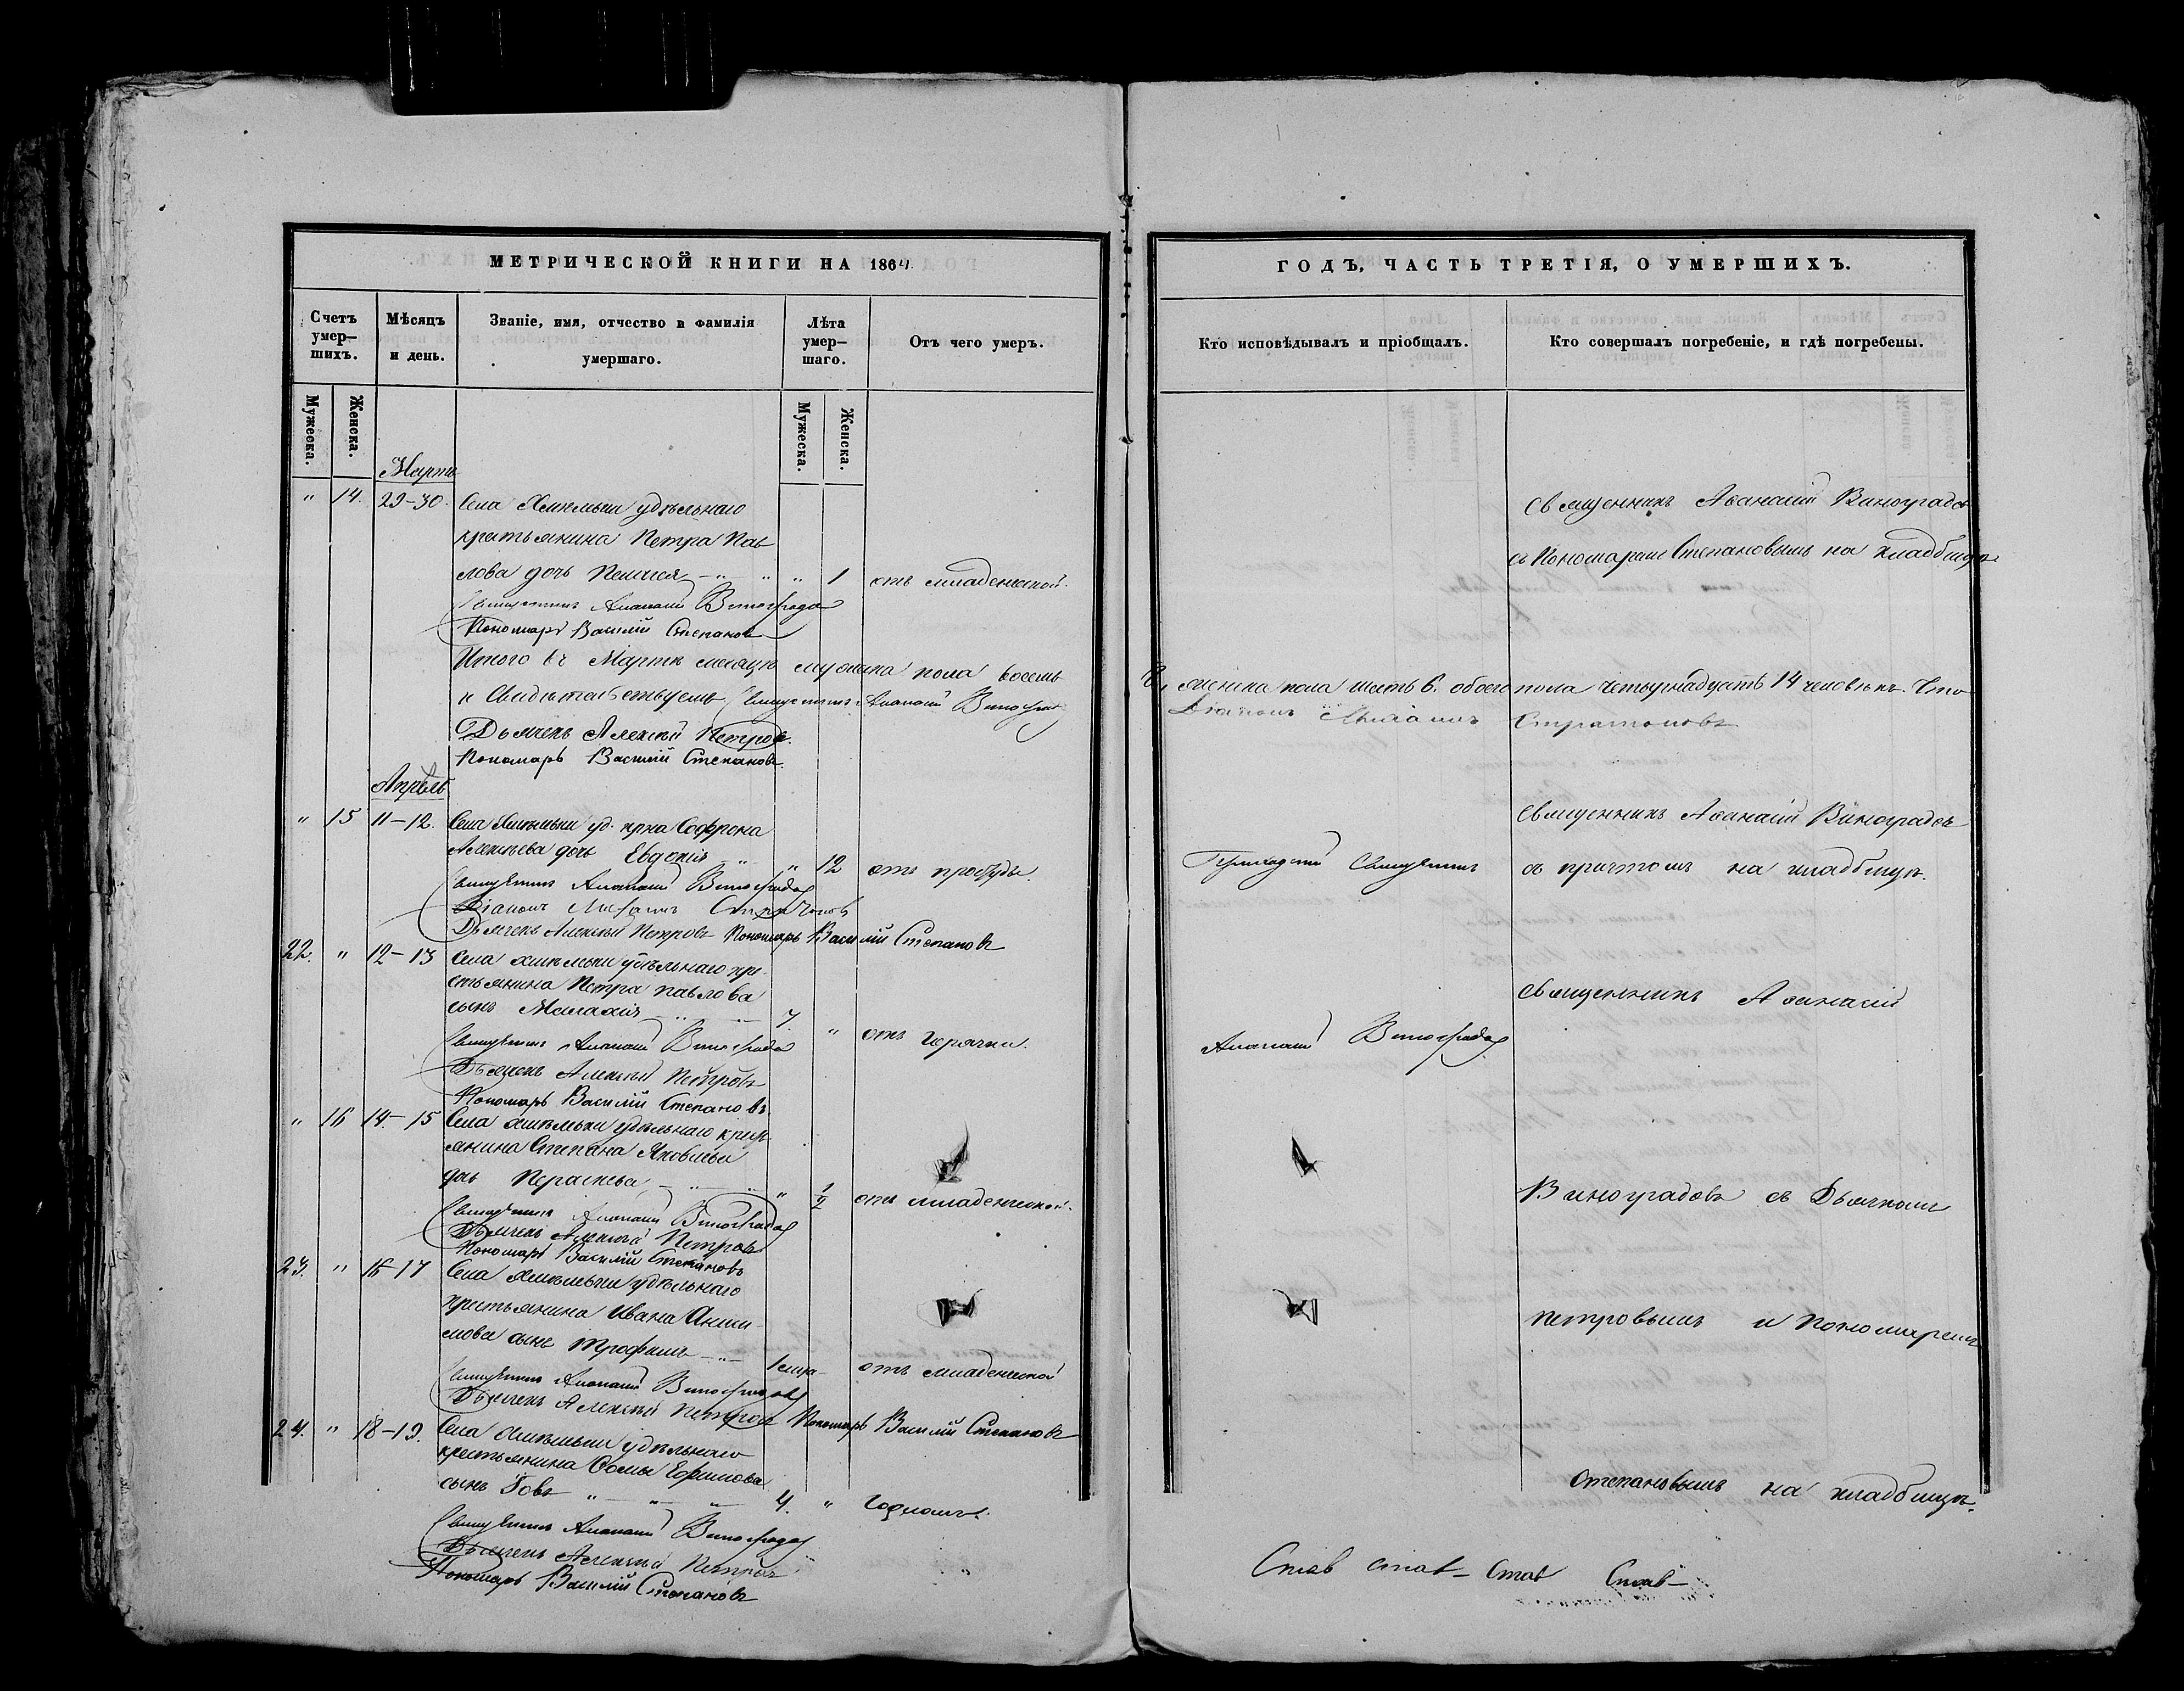 МЕТРИЧЕСКОЙ КНИГИ НА 1864.
Счетъ умер-шихъ.
Мѣсяцъ и день.
Званіе, имя, отчество и фамилія умершаго.
Лѣта умер-шаго.
Отъ чего умеръ.
Мужеска.
Женска.
Мужеска.
Женска.
Мартъ
" 14. 29-30. Села удѣльнаго
крестьянина Петра Пав
лова дочь " " 1 отъ младенческой.
Священникъ Аѳанасій Виноградов
Пономарь Василій Степановъ
Итого въ Мартѣ месяцѣ мужеска пола восемь
и Свидетельствуемъ Священникъ Аѳанасій Виноград
Дьячекъ Алексѣй Петров.
Пономарь Василій Степановъ.
Апрѣль
" 15 11-12. Села уд. крна Софрона
Алексѣева дочь Евдокія " " 12 отъ простуды.
Священникъ Аѳанасій Виноградов
Діаконъ Стратоновъ
Дьячекъ Алексѣй Петровъ Пономарь Василій Степановъ
22. " 12-13 Села удѣльнаго кре-
стьянина Петра павлова
сынъ Малахія 7. " отъ горячки.
Священникъ Аѳанасій Виноградов
Дьячекъ Алексѣй Петровъ
Пономарь Василій Степановъ.
" 16 14-15 Села удѣльнаго крест
янина Степана Яковлева
дочь " 1/2 отъ младенческой.
Священникъ Аѳанасій Виноградов
Дьячекъ Алексѣй Петровъ
Пономарь Василій Степановъ
23. " 16-17 Села удѣльнаго
крестьянина Ивана
сынъ Трофимъ отъ младенческой
Священникъ Аѳанасій Виноградовъ
Дьячекъ Алексѣй Петров Пономарь Василій Степановъ
24. " 18-19. Села удѣльнаго
крестьянина Ѳомы Ефимова
сынъ Іовъ " " " 4. "
Священникъ Аѳанасій Виноградов
Дьячекъ Алексѣй Петров
Пономарь Василій Степановъ
ГОДЪ, ЧАСТЬ ТРЕТІЯ, О УМЕРШИХЪ.
Кто исповѣдывалъ и пріобщалъ.
Кто совершалъ погребеніе, и гдѣ погребены.
Священникъ Аѳанасій Виноградов
съ Пономаремъ Степановымъ на кладбищѣ
женска пола шесть 6. обоего пола четырнадцать 14 человѣкъ. Что
Діаконъ Стратоновъ
Священникъ Аѳанасій Виноградовъ
Приходскій Священникъ съ причтомъ на кладбищѣ.
Священникъ Аѳанасій
Аѳанасій Виноградов
Виноградовъ съ Дьячкомъ
Петровымъ и Пономаремъ
Степановымъ на кладбищѣ.
Став став- Став Став-